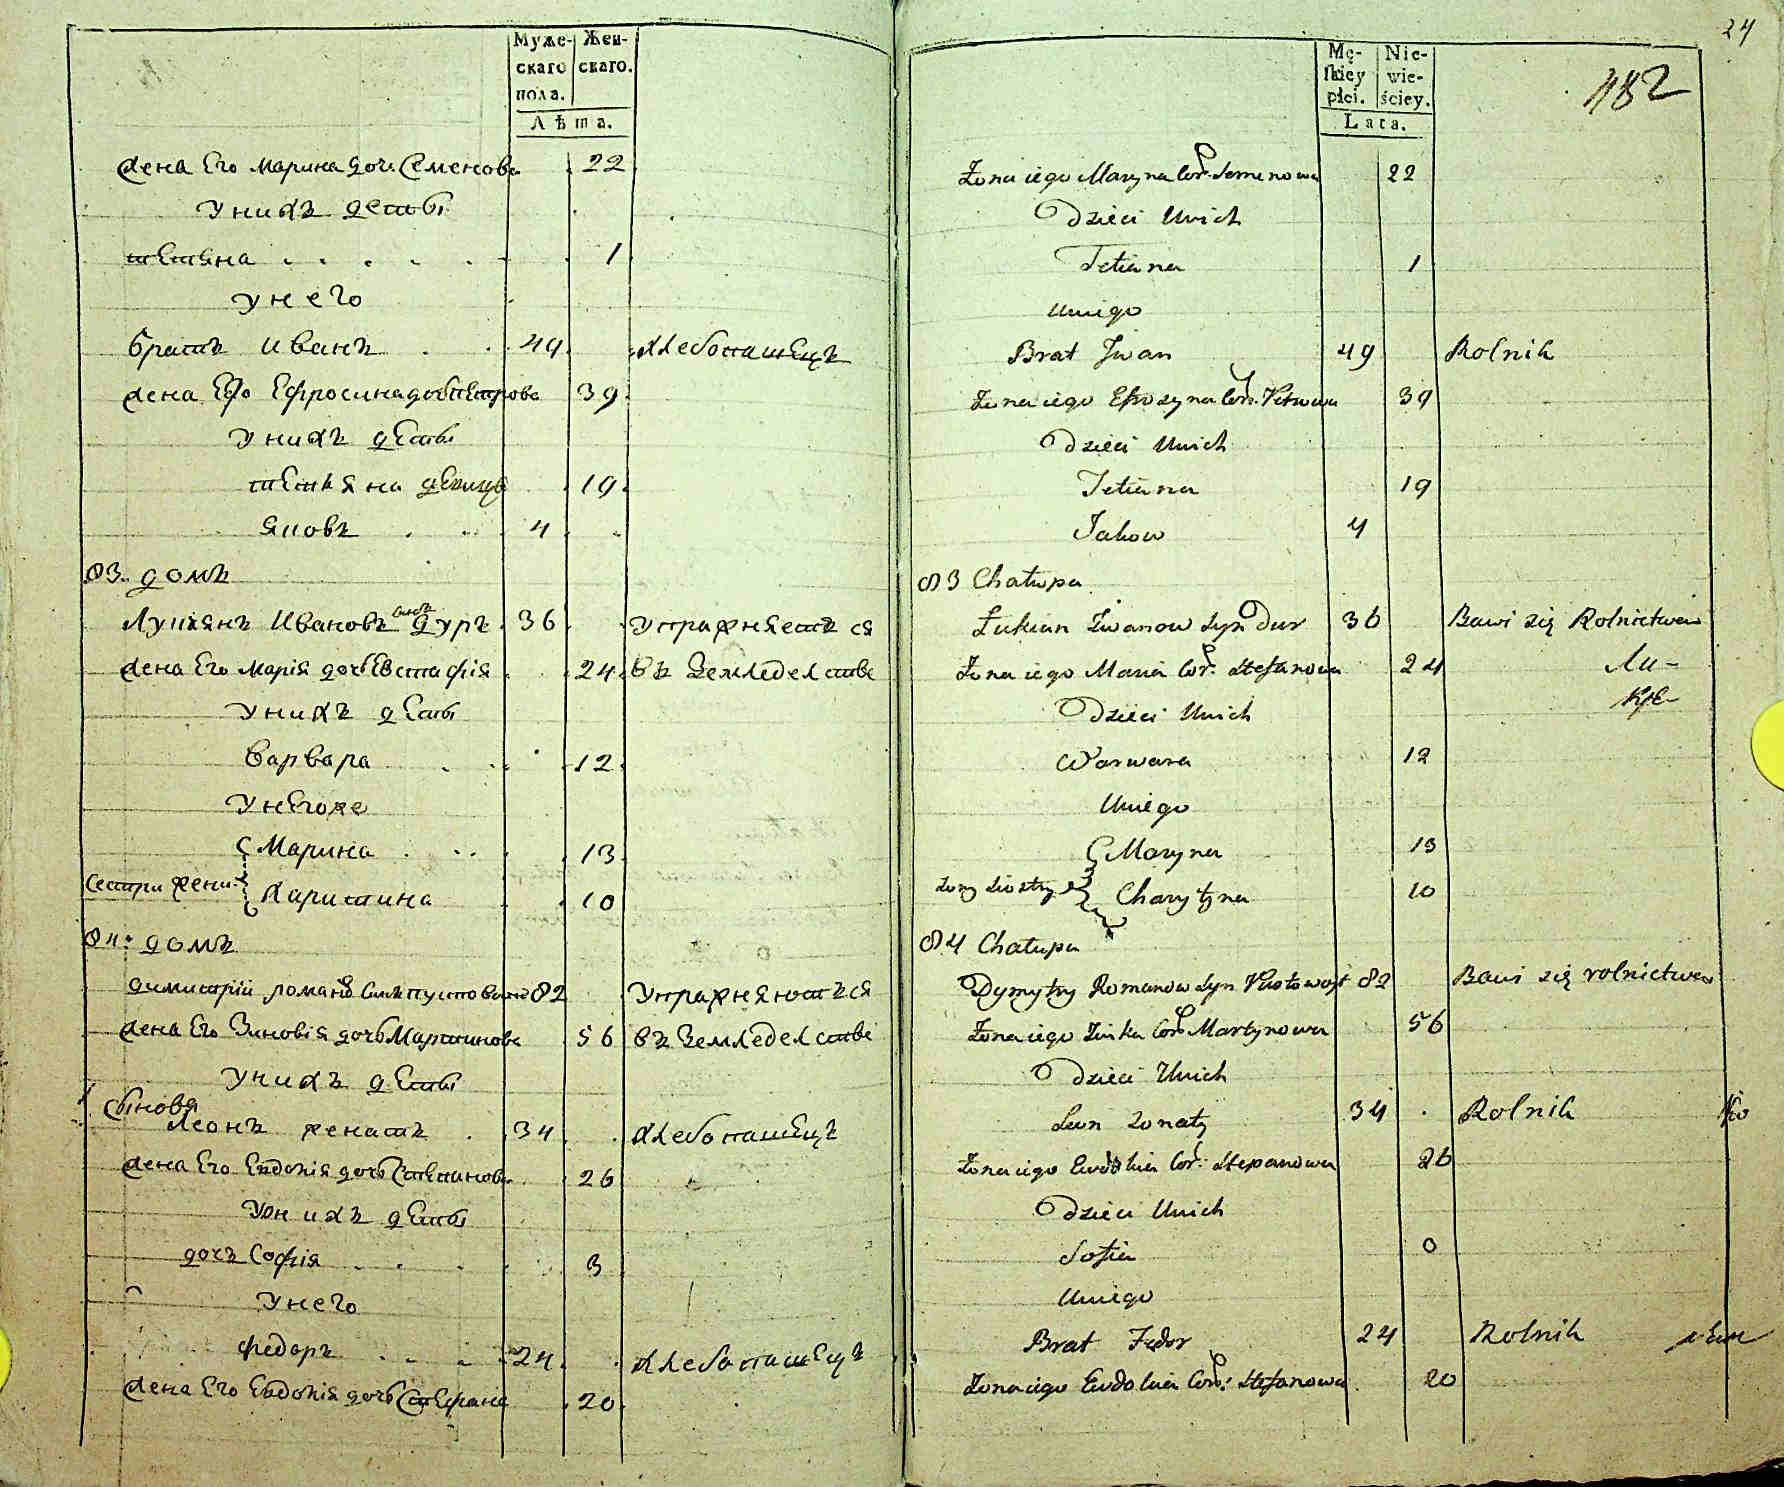 Муже-
скаго
пола.
Жен-
скаго.
Лѣта.
жена Его Марина доч. Семенова 22
У нихъ дети
тетяна 1
у него
братъ Иванъ 49 хлебопашецъ
жена Его Ефросина дочь Петрова 39
У нихъ дети
тетяна девица 19
Яковъ 4
83. домъ
Лукянъ Ивановъ синъ Дуръ 36 Упражняетъ ся
жена Его Марія дочь Евстафія 24 въ Земледелстве
У нихъ дети
Варвара 12
У негоже
Марина 13
Сестри жени Харитина 10
84. домъ
димитрій романо синъ пустовойт 82 Упражняютъ ся
жена Его Зиновія дочь Мартинова 56 въ Земледелстве
У нихъ дети
Сыновя
Леонъ женатъ 34 хлебопашецъ
жена Его Евдокія дочь Степанова 26
У нихъ дети
дочъ Софія 3
У него
Федоръ 24 хлебопашецъ
жена Его Евдокія дочь Стефана 20
24
482
Mę-
skiey
płci.
Nie-
wie-
ściey.
Lata.
Żona iego Maryna Cor. Semenowa 22
Dzieci Unich
Tetiana 1
Uniego
Brat Jwan 49 Rolnik
Żona iego Efrozyna Cor. Petrowa 39
Dzieci Unich
Tetiana 19
Jakow 4
83 Chałupa
Łukian Iwanow Syn Dur 36 Bawi się Rolnictwem
Żona iego Maria Cor. Stefanowa 24
Dzieci Unich
Warwara 12
Uniego
Maryna 13
żony Siostry Charytyna 10
84 Chałupa
Dymytry Romanow Syn Pustowoyt 82 Bawi się rolnictwem
Żona iego Zinka Cor. Martynowa 56
Dzieci Unich
Leon żonaty 34 Rolnik
Żona iego Ewdokia Cor. Stepanowa 26
Dzieci Unich
Sofia 0
Uniego
Brat Fedor 24 Rolnik
Żona iego Ewdokia Cor. Stefanowa 20